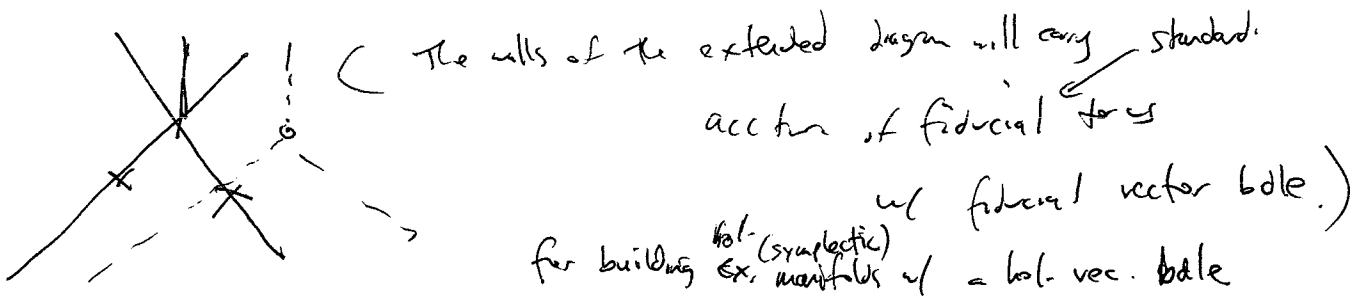 ( The walls of the extended diagram will carry standard.
action of fiducial torus
w/ fiducial vector bdle. )
for building hol. (symplectic) ex. manifolds w/ a hol. vec. bdle